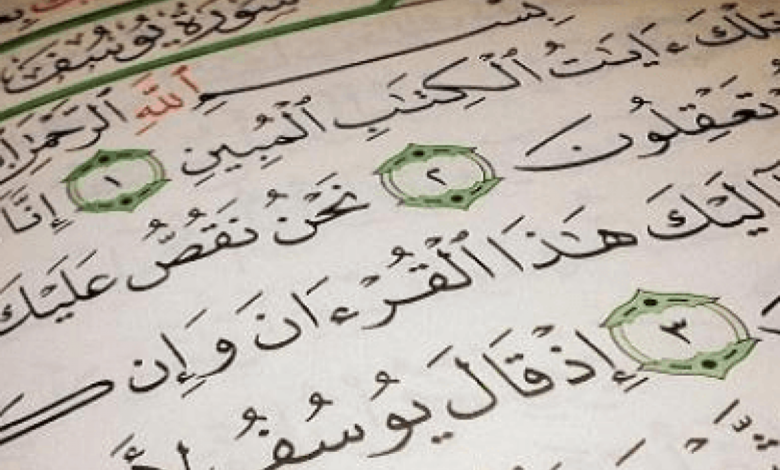 سُورَةُ يُوسُفَ
بِسْمِ ٱللَّهِ ٱلرَّحْمَٰنِ
تِلْكَ ءَايَٰتُ ٱلْكِتَٰبِ ٱلْمُبِينِ ١ إِنَّا
تَعْقِلُونَ ٢ نَحْنُ نَقُصُّ عَلَيْكَ
إِلَيْكَ هَٰذَا ٱلْقُرْءَانَ وَإِن
٣ إِذْ قَالَ يُوسُفُ